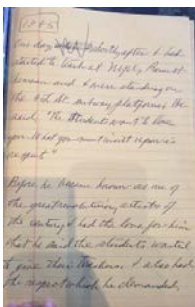 1965
One day shortly after I had
started to teach at
and I were standing on
the subway platform. He
said "The students want to love
you. What you must insist upon is
respect"
Before he became known as one of
the great revolutionary artists of
the century I had the love for him
that he said the students wanted
to give their teachers. I also had
the respect which he demanded,